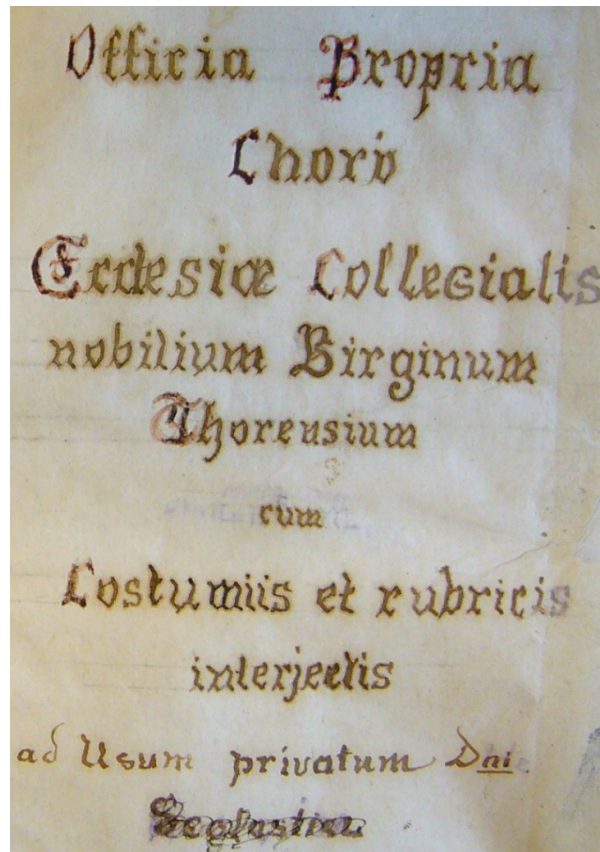 Officia Propria
Chori
Ecclesiæ Collegialis
nobilium Virginum
Thorensium
cum
Costumiis et rubricis
interjectis
ad Usum privatum Dni